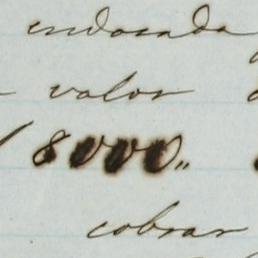 endosada
valor
8000,,
cobrar